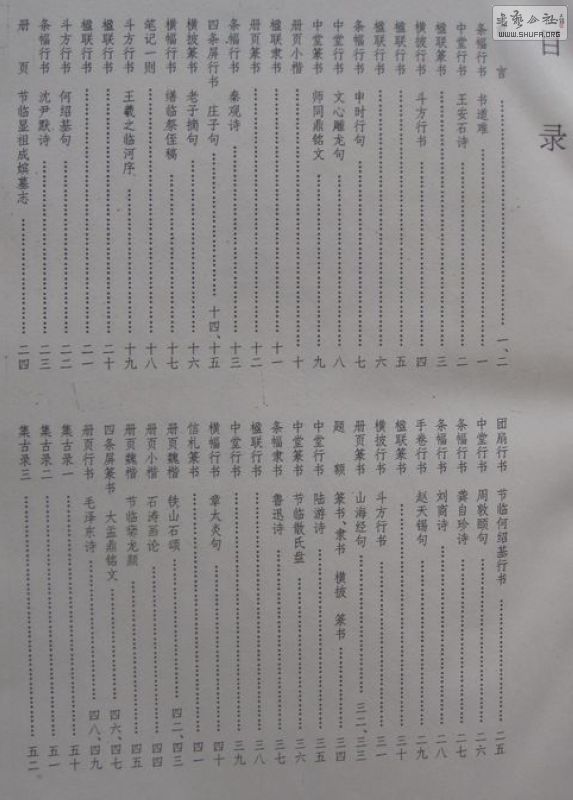 目录
言……一、二
条幅行书 书道难……一
中堂行书 王安石诗……二
楹联篆书……三
横披行书 斗方行书……四
楹联行书……五
楹联行书……六
条幅行书 申时行句……七
中堂行书 文心雕龙句……八
中堂篆书 师同鼎铭文……九
册页小楷……十
楹联隶书……十一
册页篆书……十二
条幅行书 秦观诗……十三
四条屏行书 庄子句……十四、十五
横披篆书 老子摘句……十六
横幅行书 缮临祭侄稿……十七
笔记一则……十八
斗方行书 王羲之临河序……十九
楹联行书……二十
楹联行书……二一
斗方行书 何绍基句……二二
条幅行书 沈尹默诗……二三
册 页 节临显祖成嫔墓志……二四
团扇行书 节临何绍基行书……二五
中堂行书 周敦颐句……二六
条幅行书 龚自珍诗……二七
条幅行书 刘商诗……二八
手卷行书 赵天锡句……二九
楹联篆书……三十
横披行书 斗方行书……三一
册页篆书 山海经句……三二、三三
题 额 篆书、隶书 横披 篆书……三四
中堂行书 陆游诗……三五
中堂篆书 节临散氏盘……三六
条幅隶书 鲁迅诗……三七
楹联行书……三八
中堂行书……三九
横幅行书 章太炎句……四十
信札篆书……四一
册页魏楷 铁山石颂……四二、四三
册页小楷 石涛画论……四四
册页魏楷 节临 龙颜……四五
四条屏篆书 大盂鼎铭文……四六、四七
册页行书 毛泽东诗……四八、四九
集古录一……五十
集古录二……五一
集古录三……五二
书艺公社
WWW.SHUFA.ORG